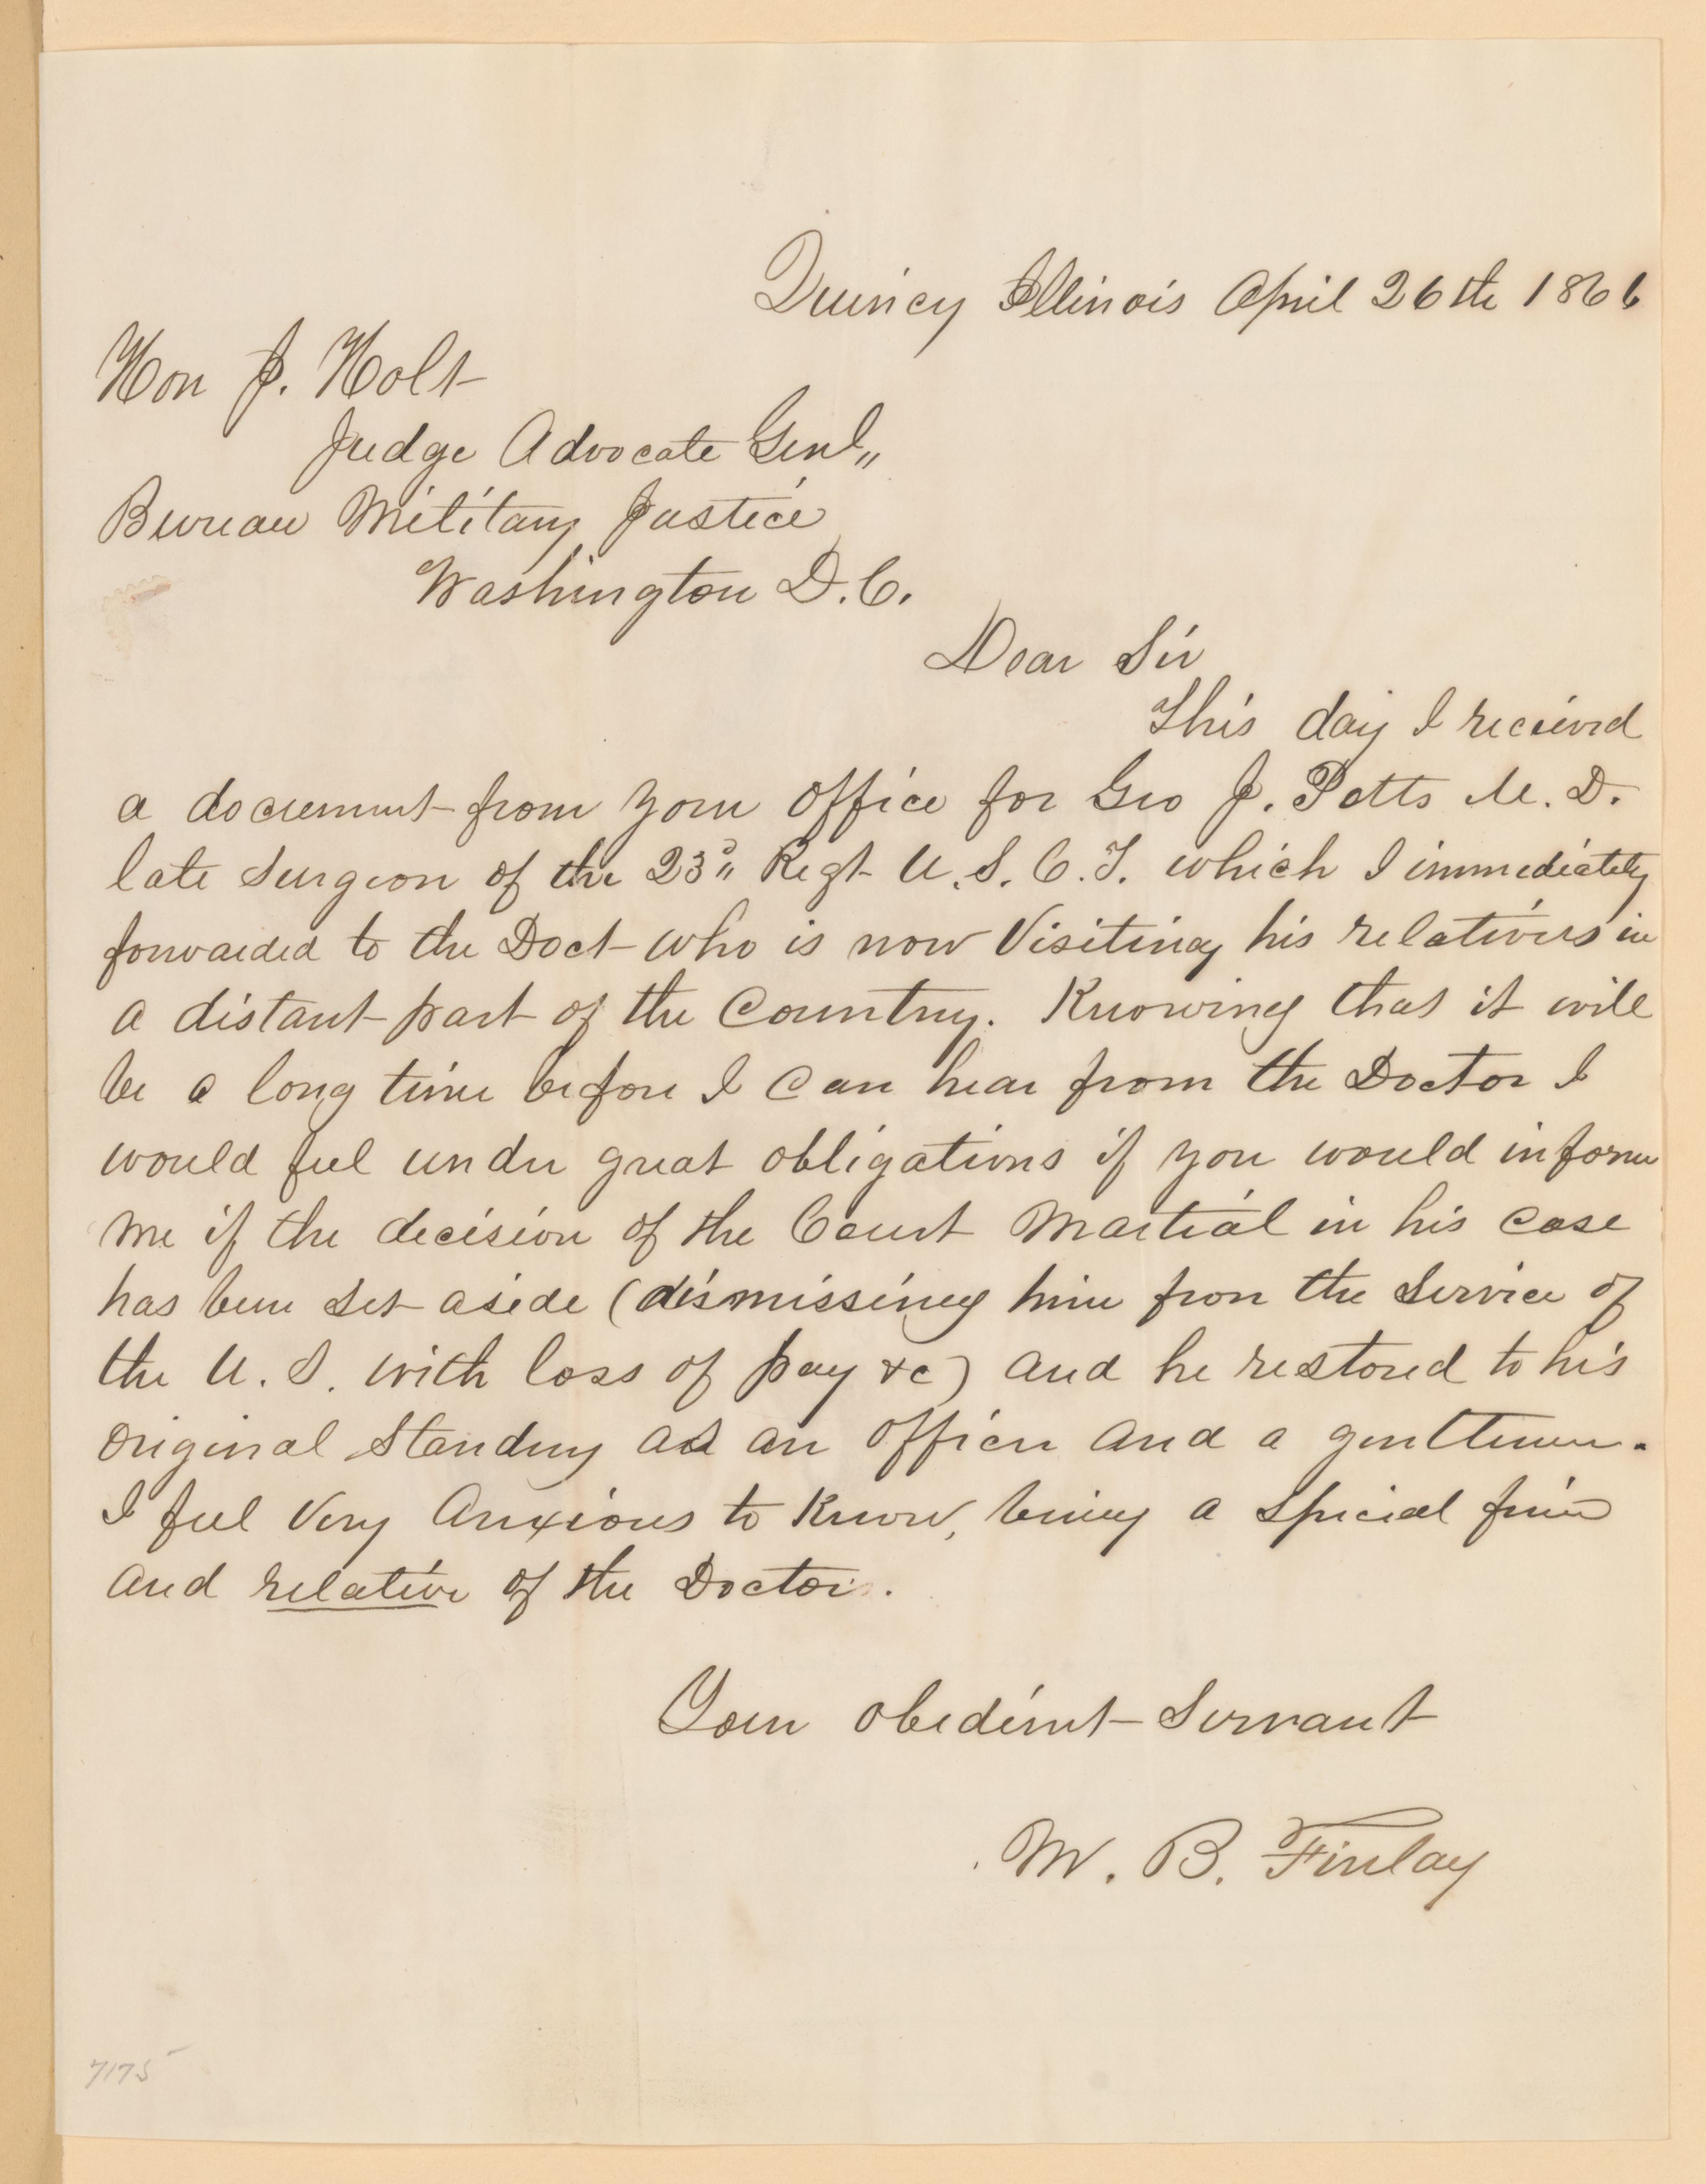 Quincy Illinois April 26th 1866
Hon J. Holt
Judge Advocate Genl,,
Bureau Military Justice
Washington D.C.
Dear Sir
This day I recieved
a document from your office for Geo J. Potts M.D.
late Surgeon of the 23d,, Regt U.S.C.T. which I immediately
forwarded to the Doct who is now Visiting his relatives in
a distant part of the Country. Knowing that it will
be a long time before I can hear from the Doctor I
would feel under great obligations if you would inform
me if the decision of the Court Martial in his case
has been set aside (dismissing him from the Service of
the U.S. with loss of pay &c) and he restored to his
original Standing as an officer and a gentleman.
I feel Very Anxious to Know, being a special frind
and relative of the Doctor.
Your obedient Servant
W. B. Finlay
7175